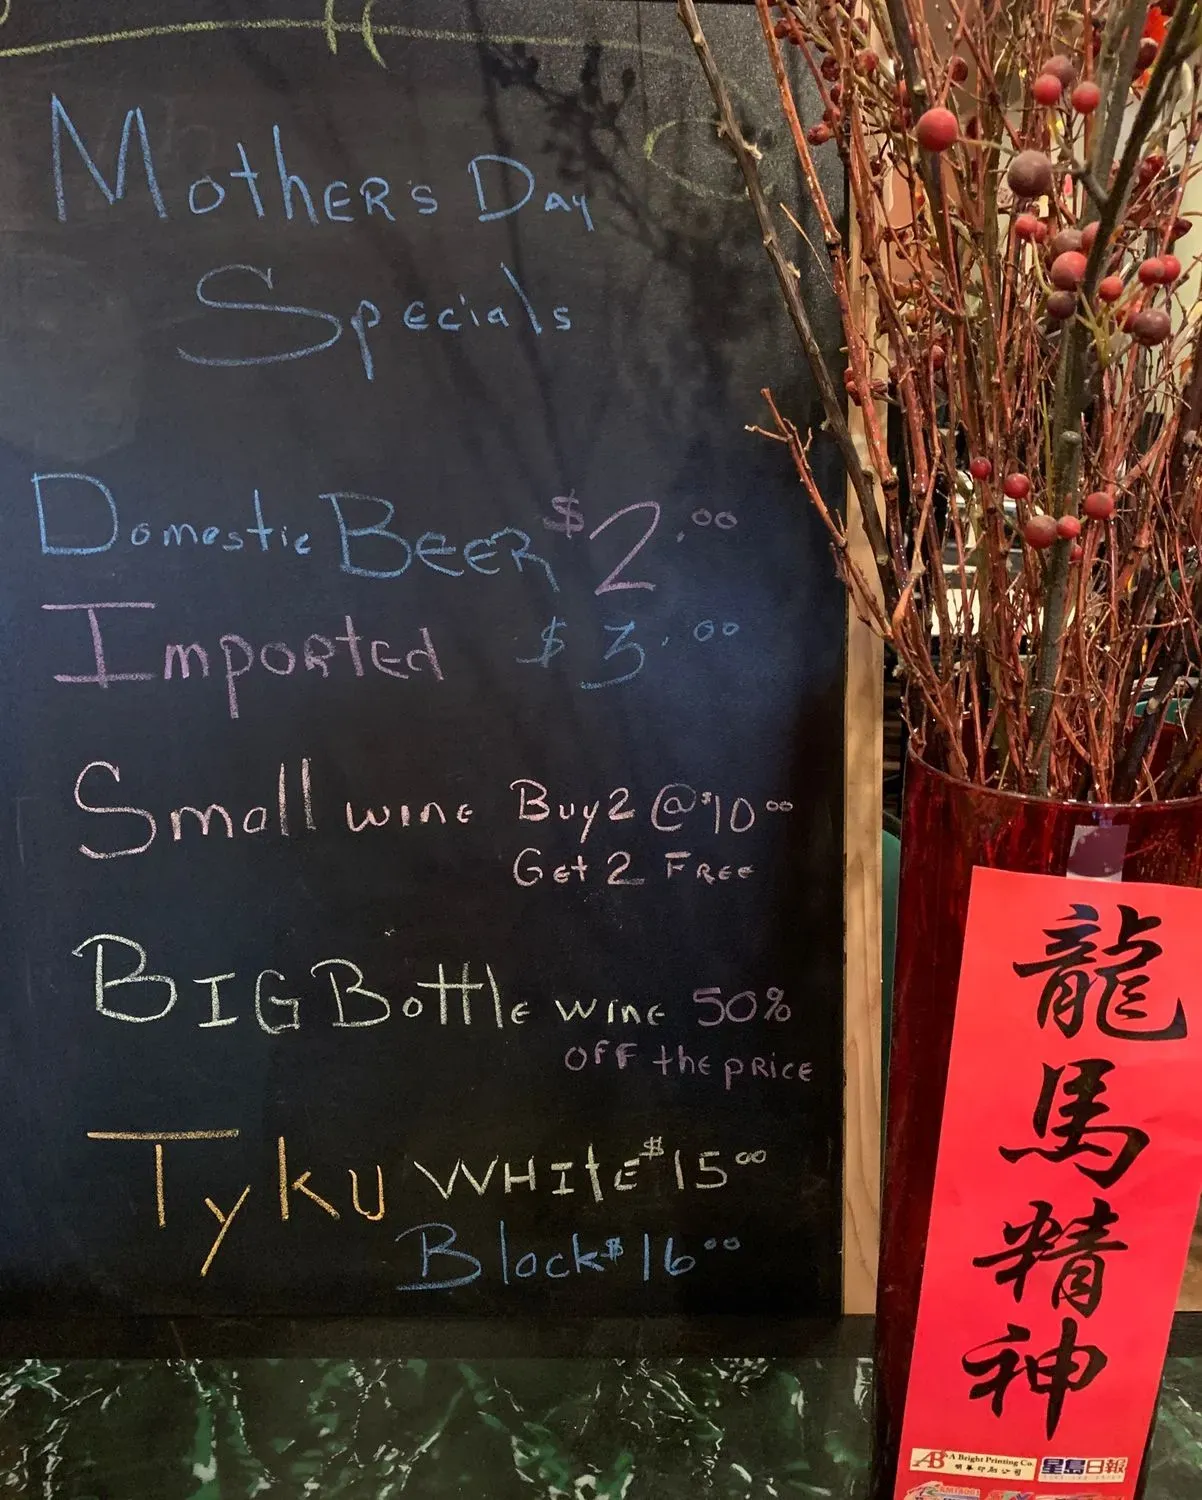 Mothers Day
Specials
Domestic Beer $2.00
Imported $3.00
Small wine Buy 2 @ $10 00
Get 2 Free
BIG Bottle wine 50%
OFF the price
Tyku White $15 00
Black $16 00
龍馬精神
AB A Bright Printing Co.
明華印刷公司
星島日報